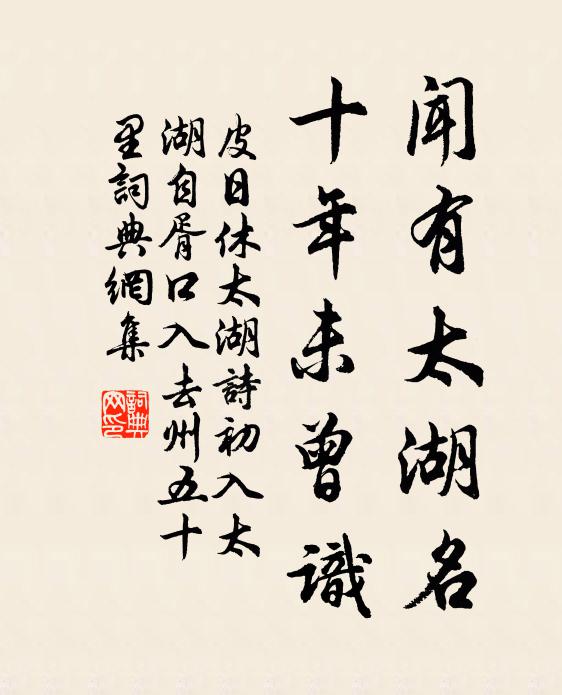 聞有太湖名
十年未曾識
皮日休太湖詩初入太
湖自胥口入去州五十
里詞典網集
詞典網印